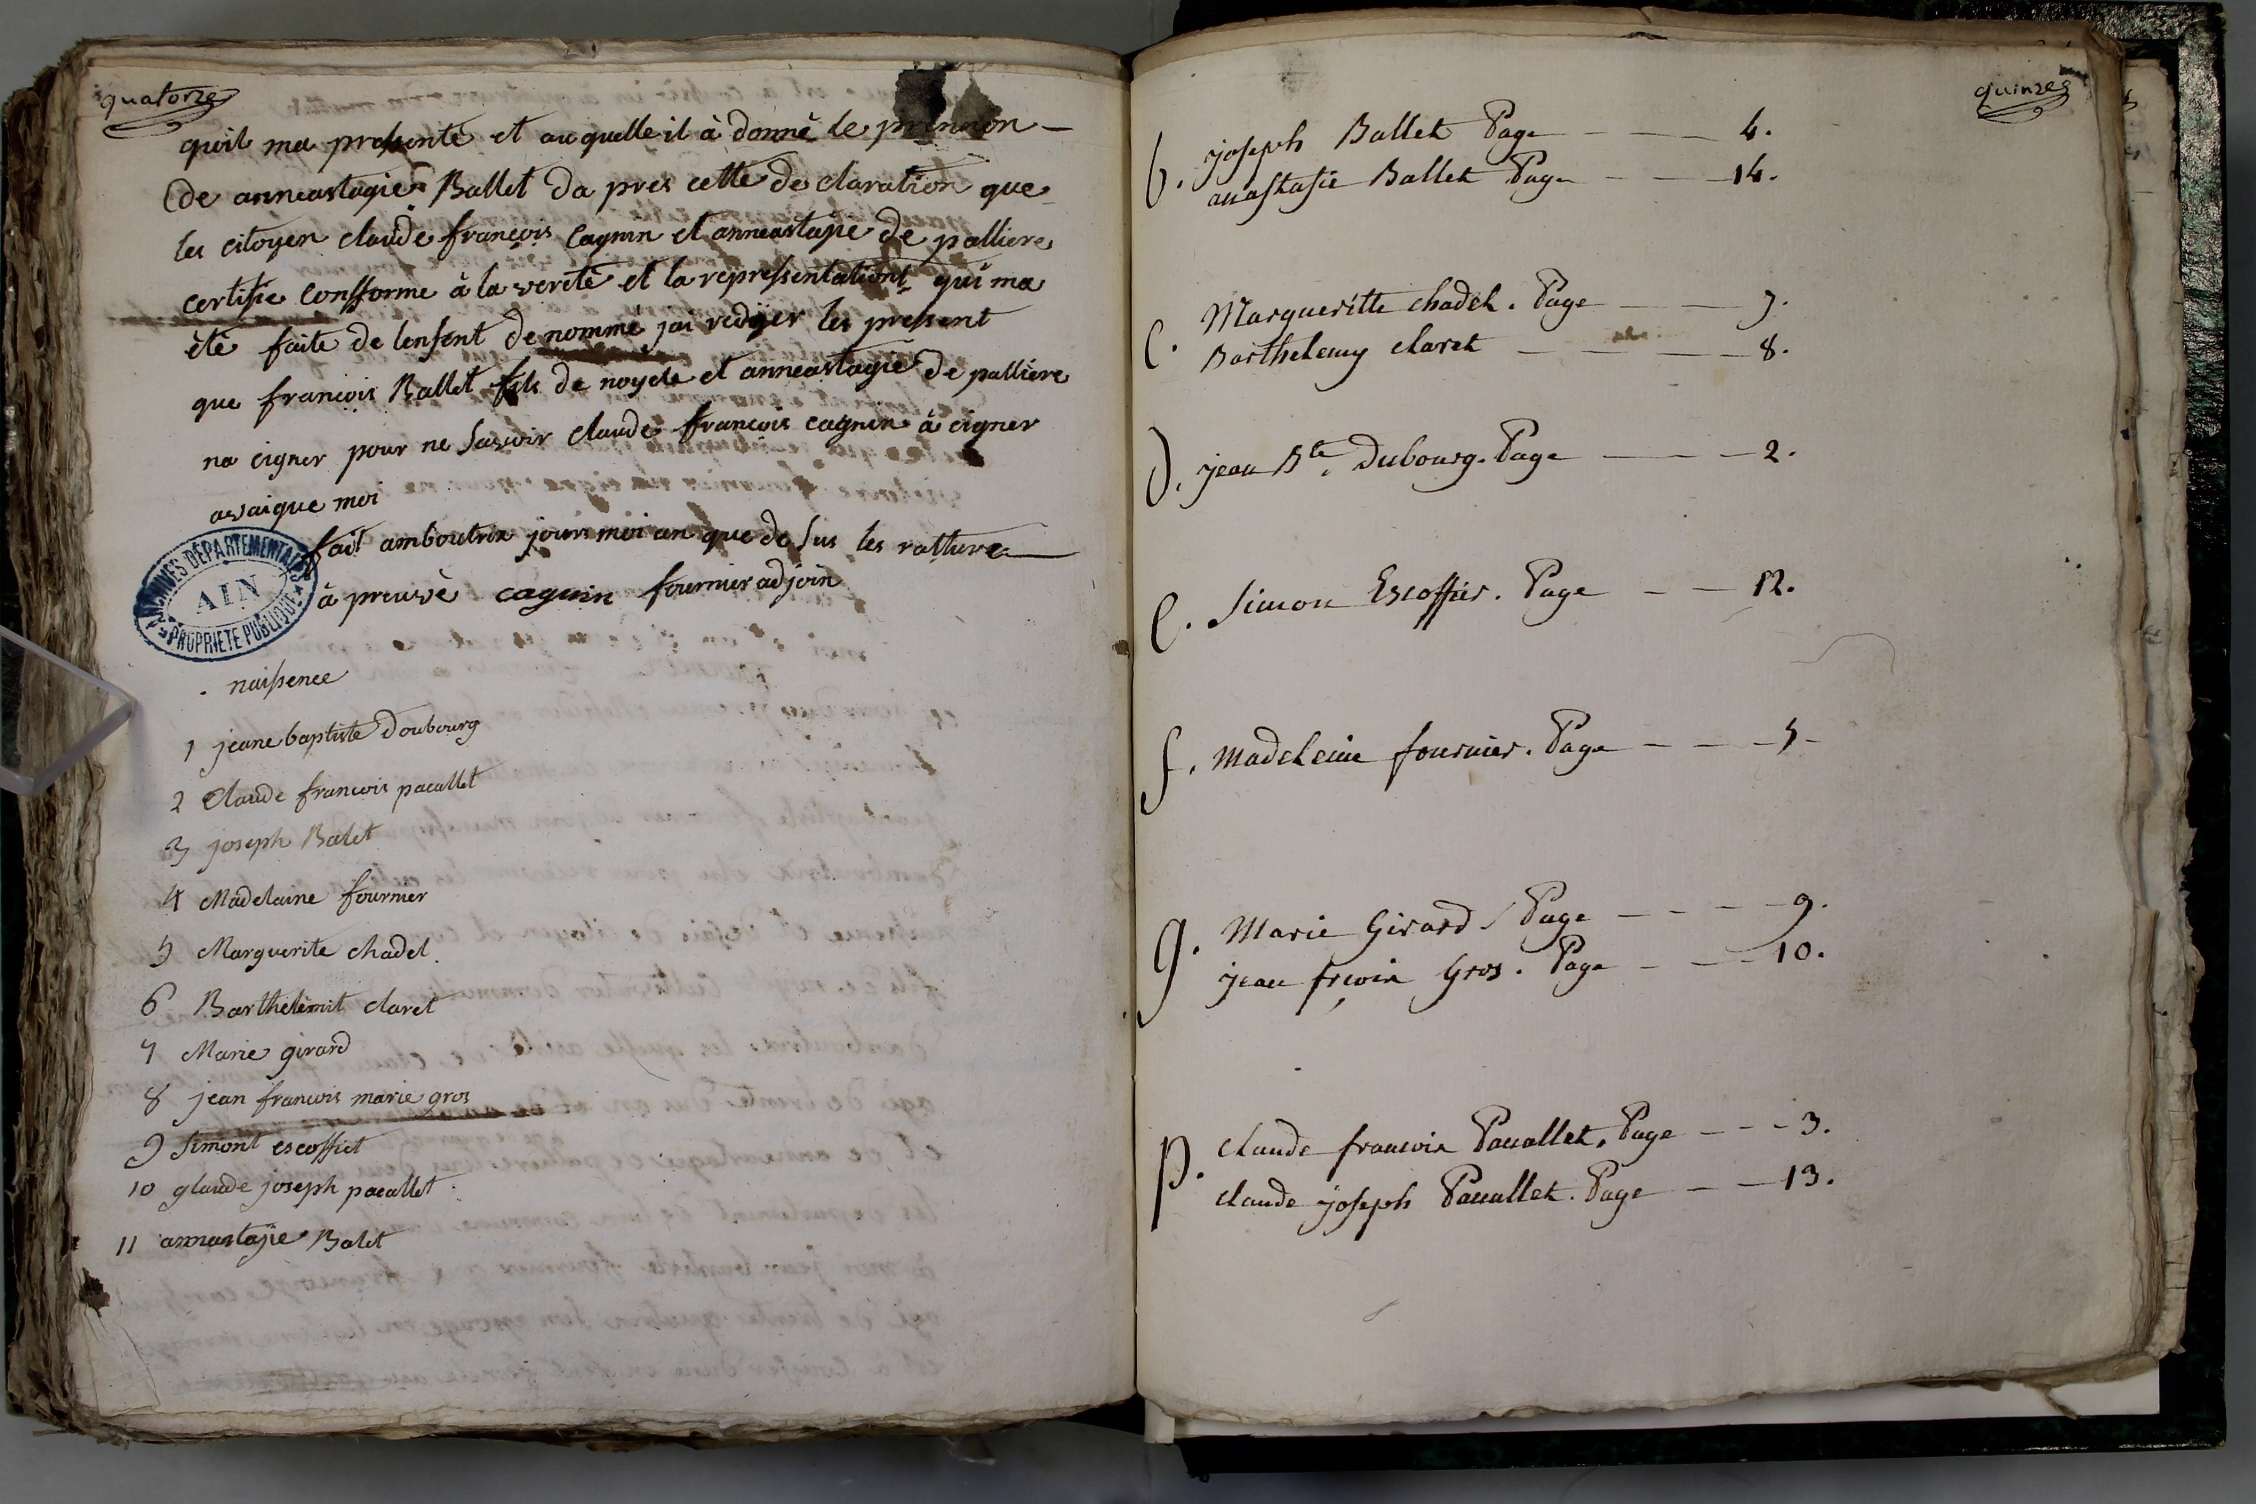 quatorze
quil ma presenté et auquelle il à donné le prennon
de anneastagie Ballet da pres cette declaration que
les citoyen claude francois cagnin et anneastasie de palliere
certifie consforme à la verité et la representationt qui ma
été faite de lenfent denommé jai rediger les present
que francois Ballet fils de noyele et anneastagie de palliere
na cigner pour ne savoir claude francois cagnin à cigner
avaique moi
fait amboutrix jours moi an que de sus les ratture
à preuvé cagnin fournier adjoin
ARCHIVES DÉPARTEMENTALES
AIN
PROPRIÉTÉ PUBLIQUE
naissence
1 jeane baptiste Doubourg
2 Claude francois pacallet
3 joseph Balet
4 Madelaine fournier
5 Marguerite chadel.
6 Barthelémit claret
7 Marie girard
8 jean francois marie gros
9 Simont escoffiet
10 glaude joseph pacallet
11 annastajie Balet
quinze
b. joseph Ballet Page — — — 4.
anastasie Ballet Page — — 14.
C. Margueritte chadel. Page — — 7.
Barthelemy claret — — — — 8.
D. jean Bte. Dubourg. Page — — 2.
E. Simon Escoffier. Page — — 12.
f. Madeleine fournier. Page — — — 5 -
g. Marie Girard Page — — — — 9.
jean frcois Gros. Page — — — 10.
p. Claude francois Pacallet. Page — — — 3.
claude joseph Pacallet. Page — — 13.